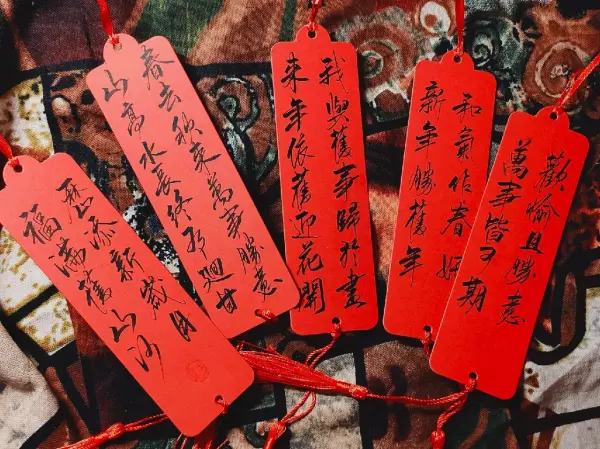 歷添新歲月
福滿舊山河
春去秋來萬事勝意
山高水長終有迴甘
我與舊事歸於盡
來年依舊迎花開
和氣作春妍
新年勝舊年
歡愉且勝意
萬事皆可期